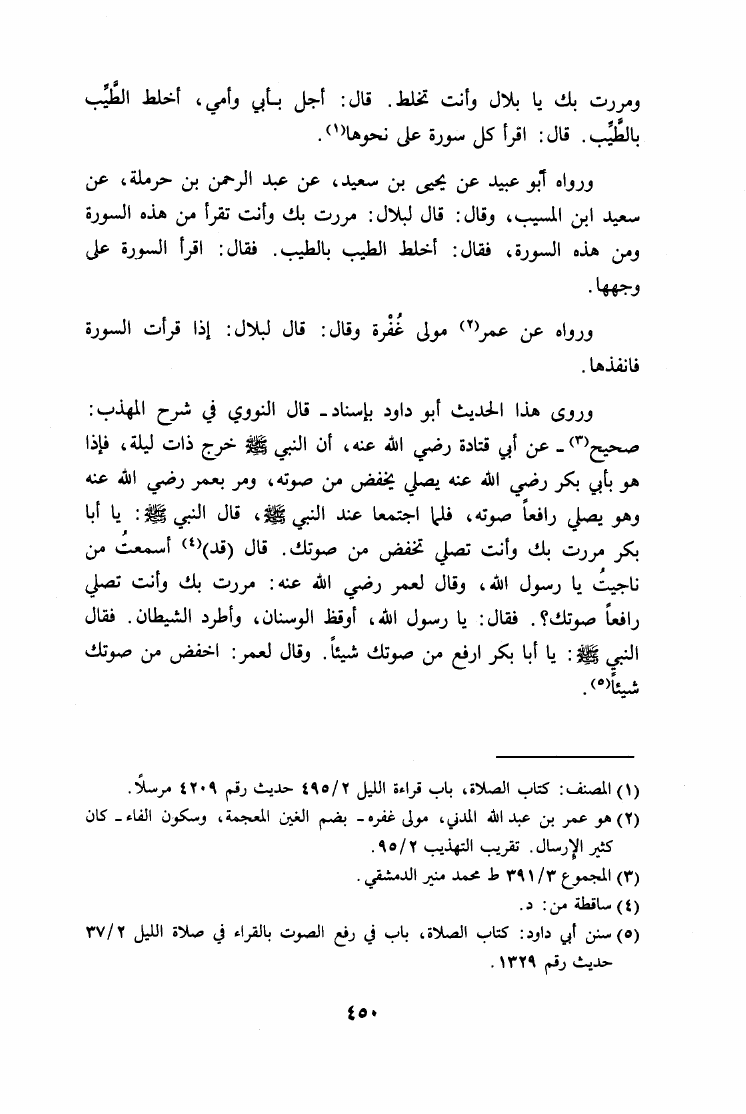 ومررت بك يا بلال وأنت تخلط. قال: أجل بـأبي وأمي، أخلط الطَّيِّب
بالطَّيِّب. قال: اقرأ كل سورة على نحوها(١).
ورواه أبو عبيد عن يحيى بن سعيد، عن عبد الرحمن بن حرملة، عن
سعيد ابن المسيب، وقال: قال لبلال: مررت بك وأنت تقرأ من هذه السورة
ومن هذه السورة، فقال: أخلط الطيب بالطيب. فقال: اقرأ السورة على
وجهها.
ورواه عن عمر(٢) مولى غُفْرة وقال: قال لبلال: إذا قرأت السورة
فانفذها.
وروى هذا الحديث أبو داود بإسناد - قال النووي في شرح المهذب:
صحيح(٣) - عن أبي قتادة رضي الله عنه، أن النبي ﷺ خرج ذات ليلة، فإذا
هو بأبي بكر رضي الله عنه يصلي يخفض من صوته، ومر بعمر رضي الله عنه
وهو يصلي رافعاً صوته، فلما اجتمعا عند النبي ﷺ، قال النبي ﷺ: يا أبا
بكر مررت بك وأنت تصلي تخفض من صوتك. قال (قد)(٤) أسمعتُ من
ناجيتُ يا رسول الله، وقال لعمر رضي الله عنه: مررت بك وأنت تصلي
رافعاً صوتك؟. فقال: يا رسول الله، أوقظ الوسنان، وأطرد الشيطان. فقال
النبي ﷺ: يا أبا بكر ارفع من صوتك شيئاً. وقال لعمر: اخفض من صوتك
شيئاً(٥).
(١) المصنف: كتاب الصلاة، باب قراءة الليل ٤٩٥/٢ حديث رقم ٤٢٠٩ مرسلًا.
(٢) هو عمر بن عبد الله المدني، مولى غفره - بضم الغين المعجمة، وسكون الفاء - كان
كثير الإرسال. تقريب التهذيب ٩٥/٢.
(٣) المجموع ٣٩١/٣ ط محمد منير الدمشقي.
(٤) ساقطة من: د.
(٥) سنن أبي داود: كتاب الصلاة، باب في رفع الصوت بالقراء في صلاة الليل ٣٧/٢
حديث رقم ١٣٢٩.
٤٥٠